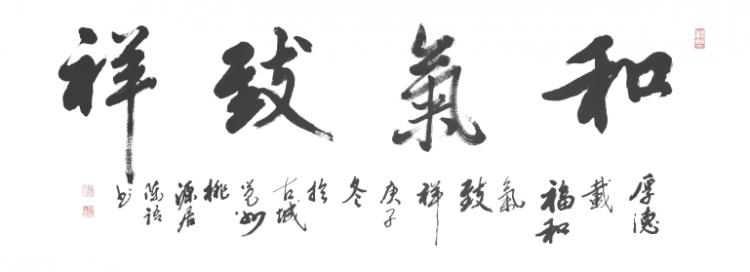 和氣致祥
厚德載福和氣致祥庚子冬於古城莒州桃源居陈语书